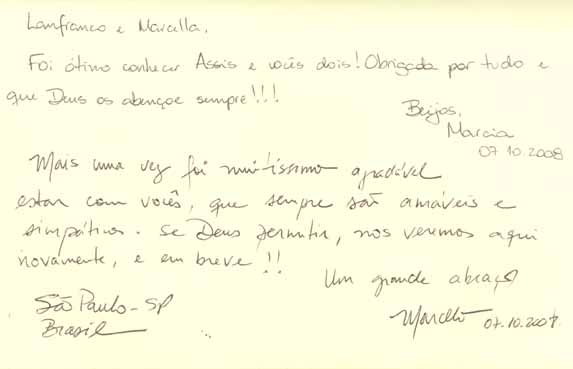 Lanfranco e Marcella,
Foi ótimo conhecer Assis e vocês dois! Obrigada por tudo e
que Deus os abençoe sempre!!!
Beijos,
Marcia
07.10.2008
Mais uma vez foi muitíssimo agradável
estar com vocês, que sempre são amáveis e
simpáticos. Se Deus permitir, nos veremos aqui
novamente, e em breve!!
Um grande abraço
São Paulo - SP
Brasil
Marcelo 07.10.2008